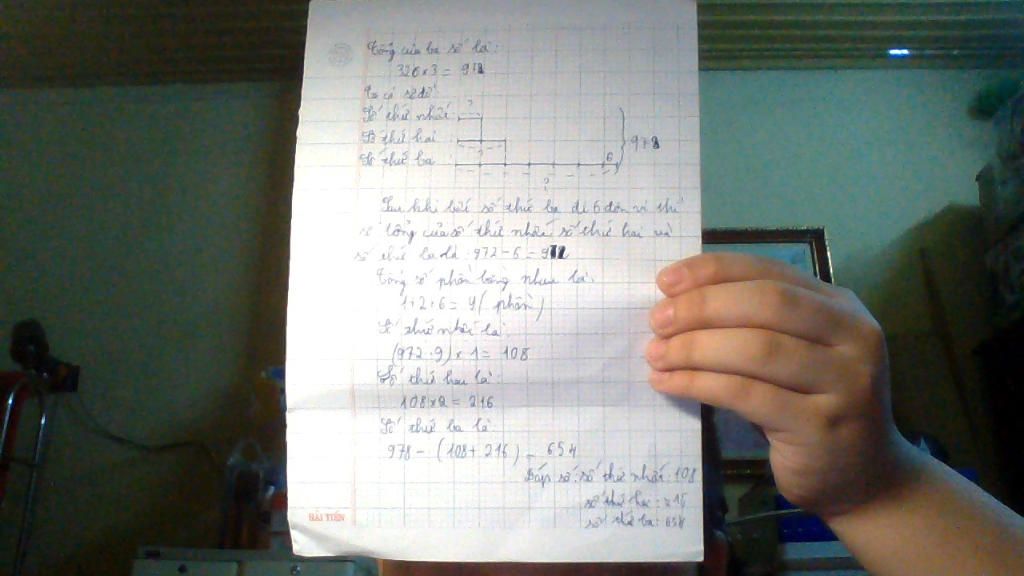 Tổng của ba số là:
326 x 3 = 978
Ta có sơ đồ
Số thứ nhất : ?
Số thứ hai : ?
Số thứ ba : 6
978
?
Sau khi bớt số thứ ba đi 6 đơn vị thì
tổng của số thứ nhất, số thứ hai và
số thứ ba là : 978 - 6 = 972
Tổng số phần bằng nhau là:
1 + 2 + 6 = 9 ( phần )
Số thứ nhất là
(972 : 9) x 1 = 108
Số thứ hai là :
108 x 2 = 216
Số thứ ba là
978 - ( 108 + 216 ) = 654
Đáp số : số thứ nhất : 108
số thứ hai : 216
số thứ ba : 654
HẢI TIẾN